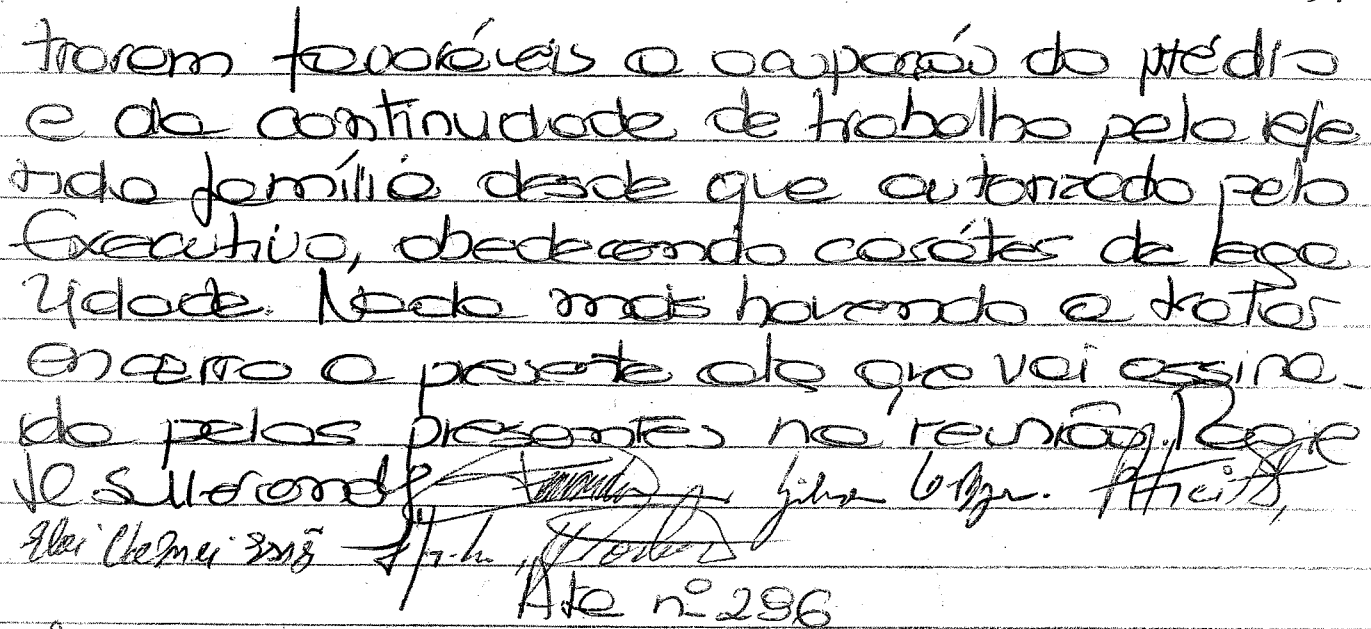 trarem favoráveis a ocupação do prédio
e da continuidade de trabalho pela refe
rida família desde que autorizado pelo
Executivo, obedecendo caráter de lega
lidade. Nada mais havendo a tratar
encerro a presente ata que vai assina-
da pelos presentes na reunião.
Ata nº 296